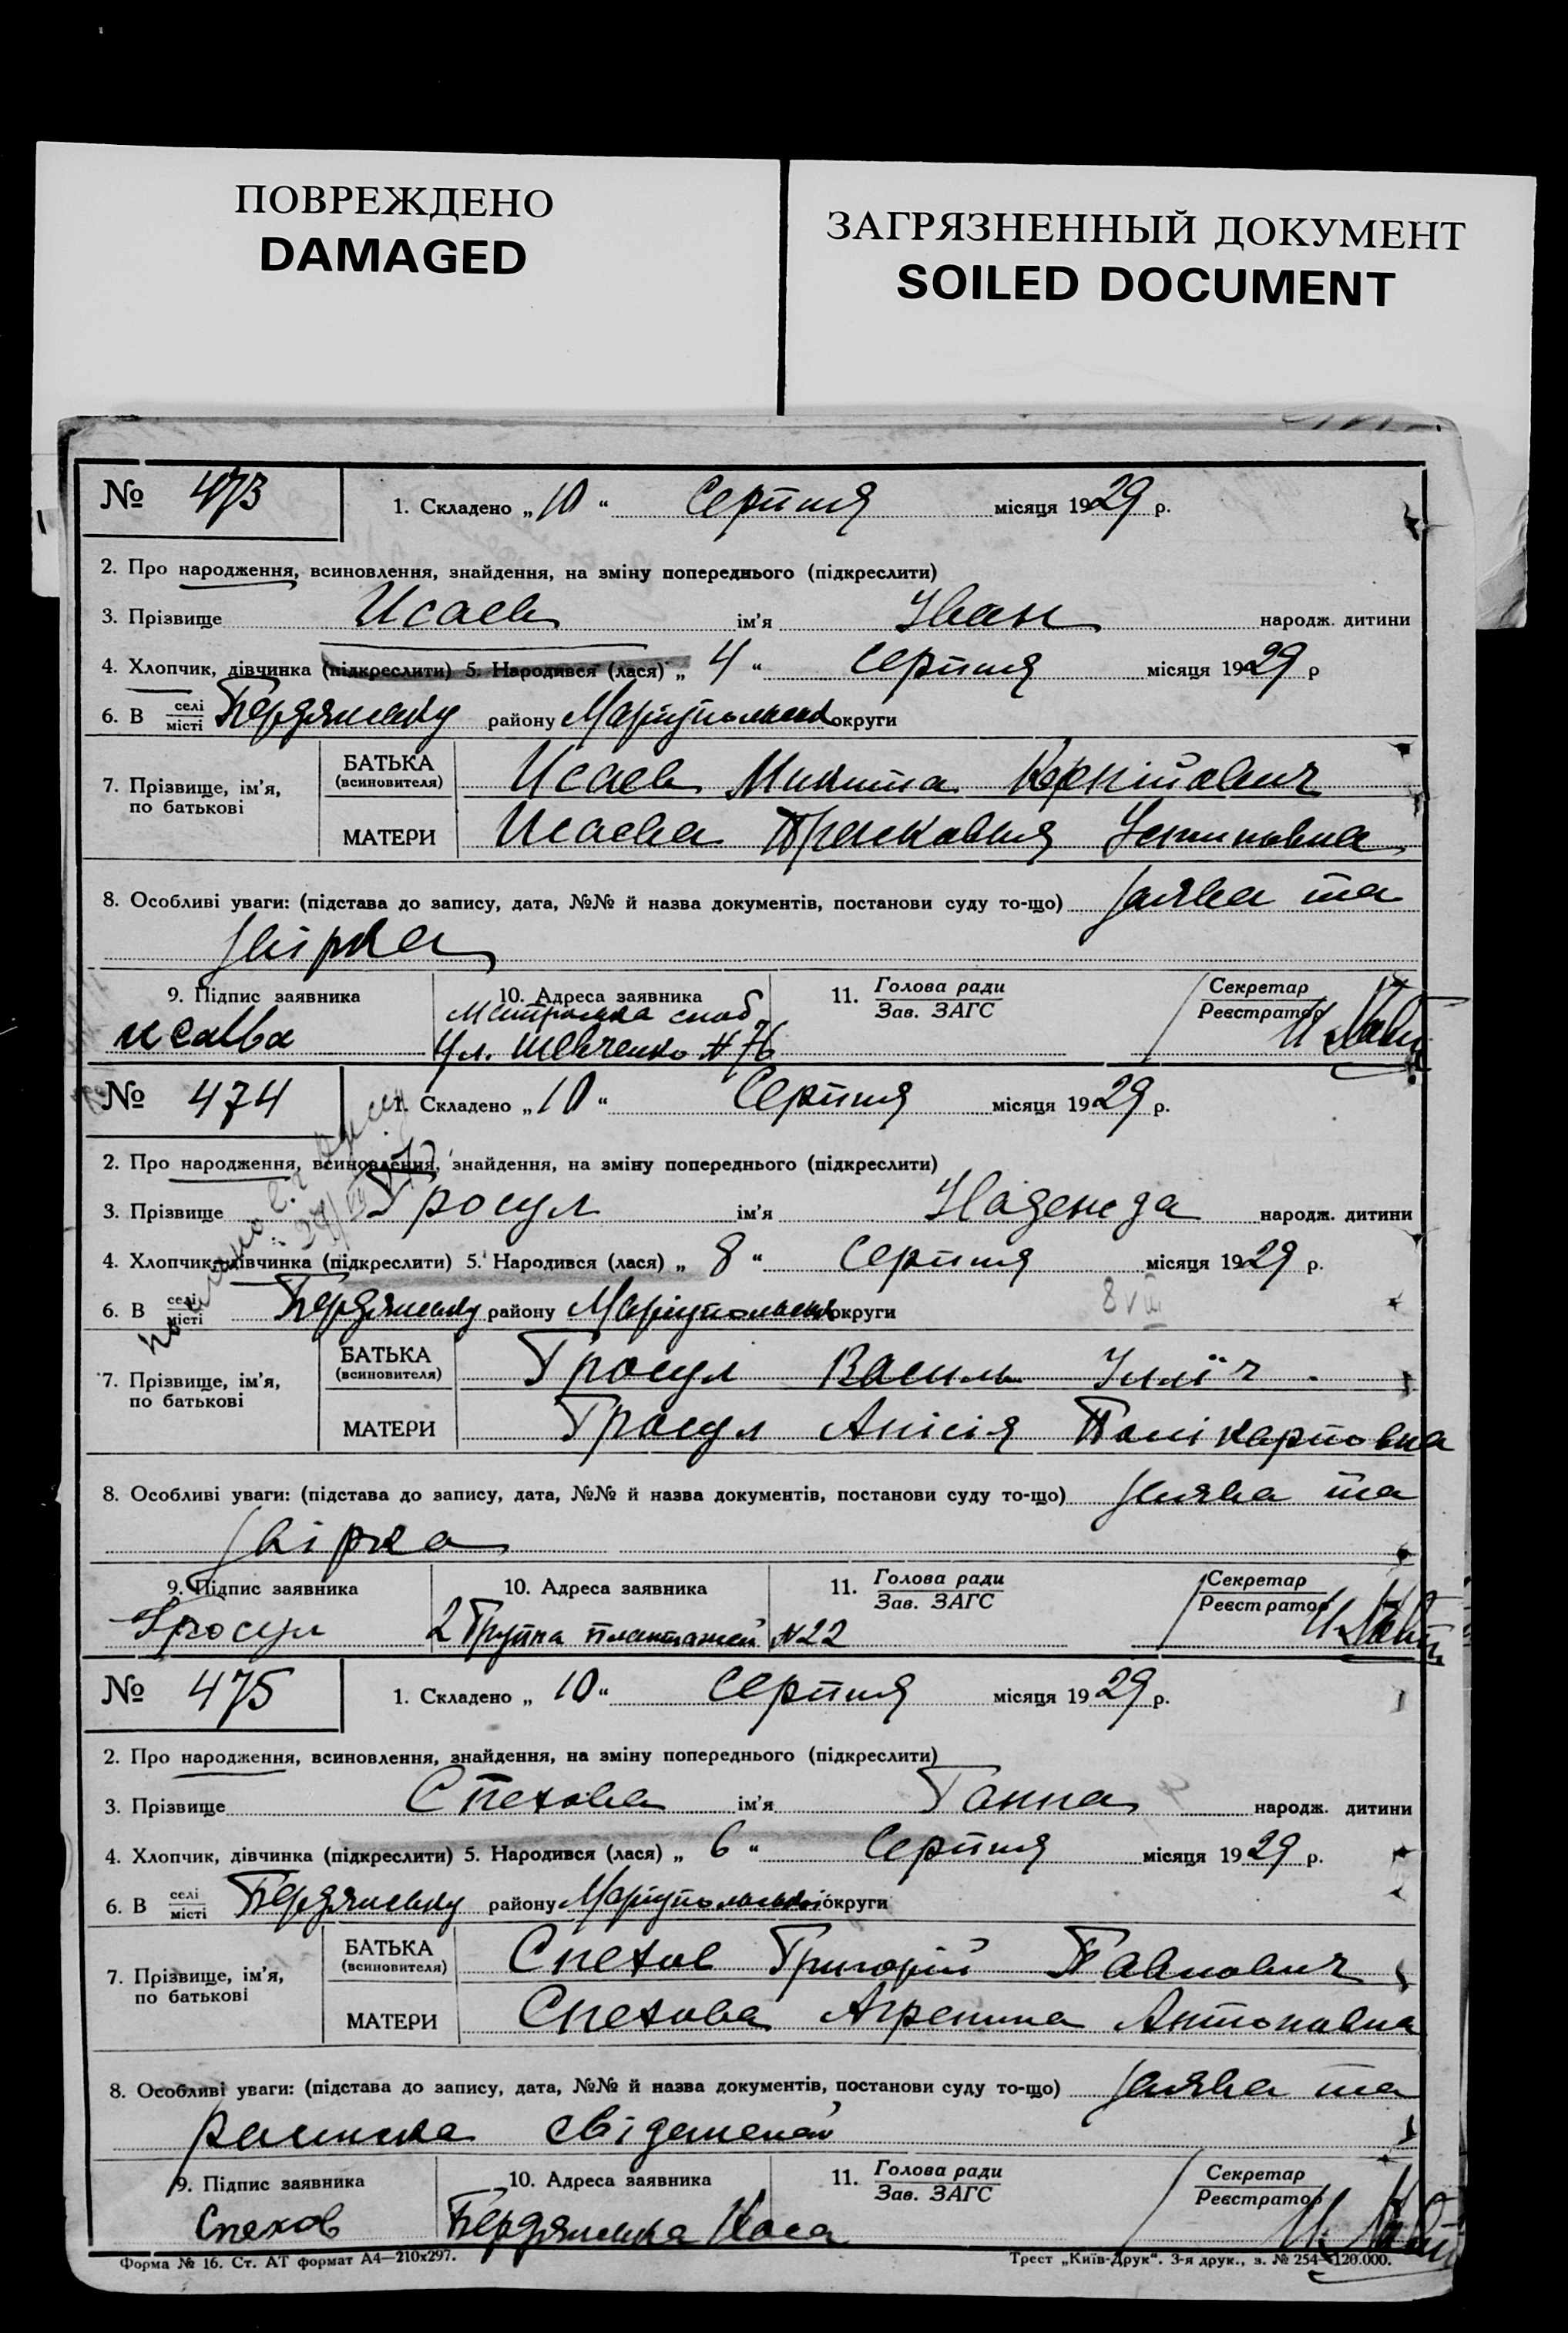 ПОВРЕЖДЕНО
DAMAGED
ЗАГРЯЗНЕННЫЙ ДОКУМЕНТ
SOILED DOCUMENT
№ 473
1. Складено „ 10 “ Серпня місяця 1929 р.
2. Про народження, всиновлення, знайдення, на зміну попереднього (підкреслити)
3. Прізвище Исаев ім'я Іван народж. дитини
4. Хлопчик, дівчинка (підкреслити) 5. Народився (лася) „ 4 “ серпня місяця 1929 р
6. В селі місті Бердянську району Маріупольськ округи
7. Прізвище, ім'я, по батькові
БАТЬКА (всиновителя) Исаев Микита Корнійович
МАТЕРИ Исаева Прасковия Устиновна
8. Особливі уваги: (підстава до запису, дата, №№ й назва документів, постанови суду то-що) Заява та
звірка
9. Підпис заявника
исаева
10. Адреса заявника
слоб.
Ул. Шевченко № 76
11. Голова ради
Зав. ЗАГС
Секретар
Реєстратор
№ 474
1. Складено „ 10 “ Серпня місяця 1929 р.
2. Про народження, всиновлення, знайдення, на зміну попереднього (підкреслити)
3. Прізвище Гросул ім'я Надежда народж. дитини
4. Хлопчик, дівчинка (підкреслити) 5. Народився (лася) „ 8 “ Серпня місяця 1929 р.
6. В селі місті Бердянську району Маріупольськ округи
8 VIII
7. Прізвище, ім'я, по батькові
БАТЬКА (всиновителя) Гросул Василь Ілліч
МАТЕРИ Гросул Анісія Полікарповна
8. Особливі уваги: (підстава до запису, дата, №№ й назва документів, постанови суду то-що) Заява та
звірка
9. Підпис заявника
Гросул
10. Адреса заявника
2 Группа плантажей №22
11. Голова ради
Зав. ЗАГС
Секретар
Реєстратор
№ 475
1. Складено „ 10 “ Серпня місяця 1929 р.
2. Про народження, всиновлення, знайдення, на зміну попереднього (підкреслити)
3. Прізвище Спехова ім'я Ганна народж. дитини
4. Хлопчик, дівчинка (підкреслити) 5. Народився (лася) „ 6 “ Серпня місяця 1929 р.
6. В селі місті Бердянську району Маріупольської округи
7. Прізвище, ім'я, по батькові
БАТЬКА (всиновителя) Спехов Григорій Павлович
МАТЕРИ Спехова Агрепина Антоновна
8. Особливі уваги: (підстава до запису, дата, №№ й назва документів, постанови суду то-що) Заява та
росписка
9. Підпис заявника
Спехов
10. Адреса заявника
Бердянська Коса
11. Голова ради
Зав. ЗАГС
Секретар
Реєстратор
Форма № 16. Ст. АТ формат А4—210х297.
Трест „Київ-Друк“. 3-я друк., з. № 254—120.000.